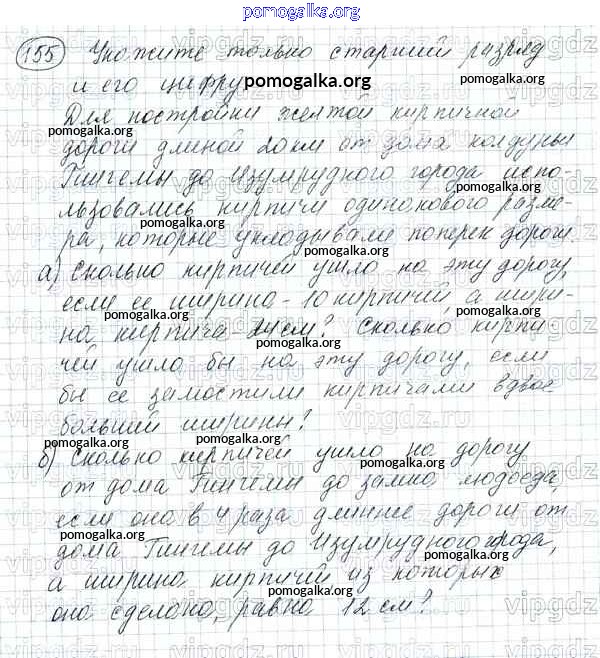 pomogalka.org
155 Укажите только старший разряд
и его цифру pomogalka.org
Для постройки желтой кирпичной
pomogalka.org pomogalka.org
дороги длиной 20 км от дома колдуньи
Гингемы до Изумрудного города испо-
pomogalka.org
льзовались кирпичи одинакового разме-
pomogalka.org
ра, которые укладывали поперек дороги.
а) Сколько кирпичей ушло на эту дорогу,
pomogalka.org
если ее ширина - 10 кирпичей, а шири-
pomogalka.org
на кирпича см? Сколько кирпи-
pomogalka.org
чей ушло бы на эту дорогу, если
бы ее замостили кирпичами вдвое
большей ширины?
pomogalka.org
б) Сколько кирпичей ушло на дорогу
pomogalka.org
от дома Гингемы до замка людоеда,
pomogalka.org
если она в 4 раза длиннее дороги от
pomogalka.org
дома Гингемы до Изумрудного города,
pomogalka.org
а ширина кирпичей из которых
pomogalka.org
она сделана, равна 12 см?
vipgdz.ru